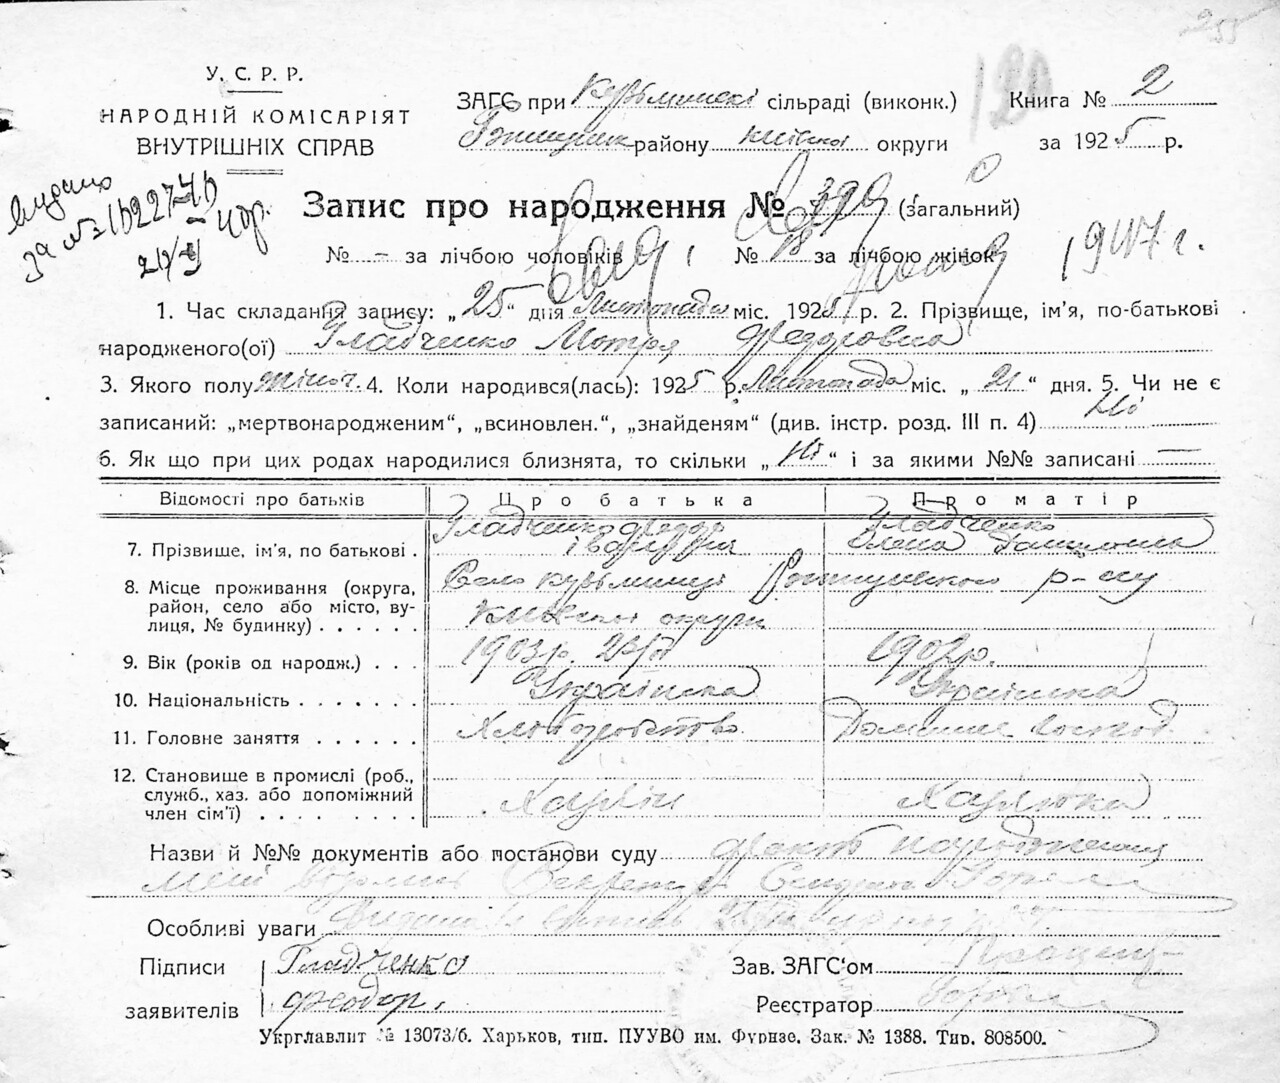 У. С. Р. Р.
НАРОДНІЙ КОМІСАРІЯТ
ВНУТРІШНІХ СПРАВ
ЗАГС при сільраді (виконк.) Книга № 2
району Київської округи за 1925 р.
Видано
за №
Запис про народження № (загальний)
№ - за лічбою чоловіків № 18 за лічбою жінок 1947 г.
1. Час складання запису: „25“ дня Листопада міс. 1925 р. 2. Прізвище, ім'я, по-батькові
народженого(ої) Гладченко Мотря Федоровна
3. Якого полу жіноч. 4. Коли народився(лась): 1925 р. Листопада міс. „21“ дня. 5. Чи не є
записаний: „мертвонародженим“, „всиновлен.“, „знайденям“ (див. інстр. розд. III п. 4) Ні
6. Як що при цих родах народилися близнята, то скільки „Ні“ і за якими №№ записані —
Відомості про батьків Про батька Про матір
7. Прізвище, ім'я, по батькові . Гладченко Федор Гладченко Олена
8. Місце проживання (округа, район, село або місто, вулиця, № будинку) . . . . . . Село р-ну
Київської округи
9. Вік (років од народж.) . . . 1903р. 1902р.
10. Національність . . . . . . . Українка Українка
11. Головне заняття . . . . . . Хліборобство Домашнє господ.
12. Становище в промислі (роб., служб., хаз. або допоміжний член сім'ї) . . . . . . . . . Хазяін Хазяйка
Назви й №№ документів або постанови суду Факт народження
мені Секретар
Особливі уваги
Підписи Гладченко Зав. ЗАГС'ом
заявителів Феодор. Реєстратор
Укрглавлит № 13073/6. Харьков, тип. ПУУВО им. Фрунзе. Зак. № 1388. Тир. 808500.